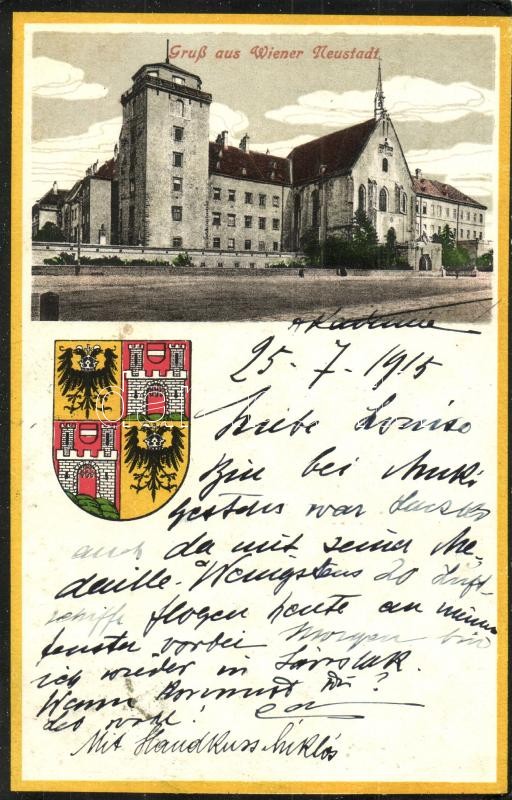 Gruß aus Wiener Neustadt
Akademie
25-7-1915
Liebe Louise
Bin bei Muki
gestern war
auch da mit seiner Me-
daille. Wenigstens 20 Luft-
schiffe flogen heute an meinem
fenster vorbei Morgen bin
ich wieder in
Wann kommst Du?
Mit Handkuss Miklós